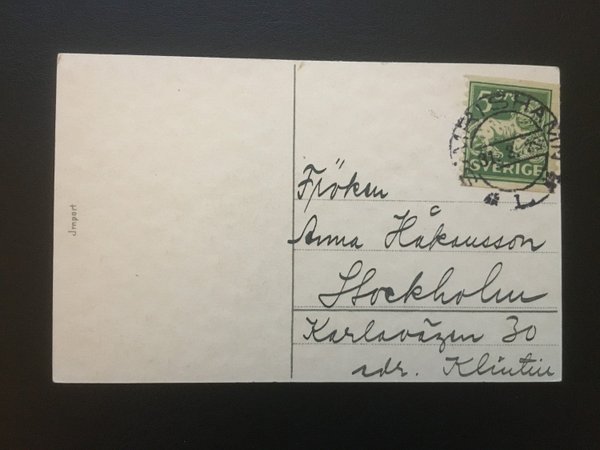 5 ÖRE
SVERIGE
Fröken
Anna Håkansson
Stockholm
Karlavägen 30
adr. Klintin
Import